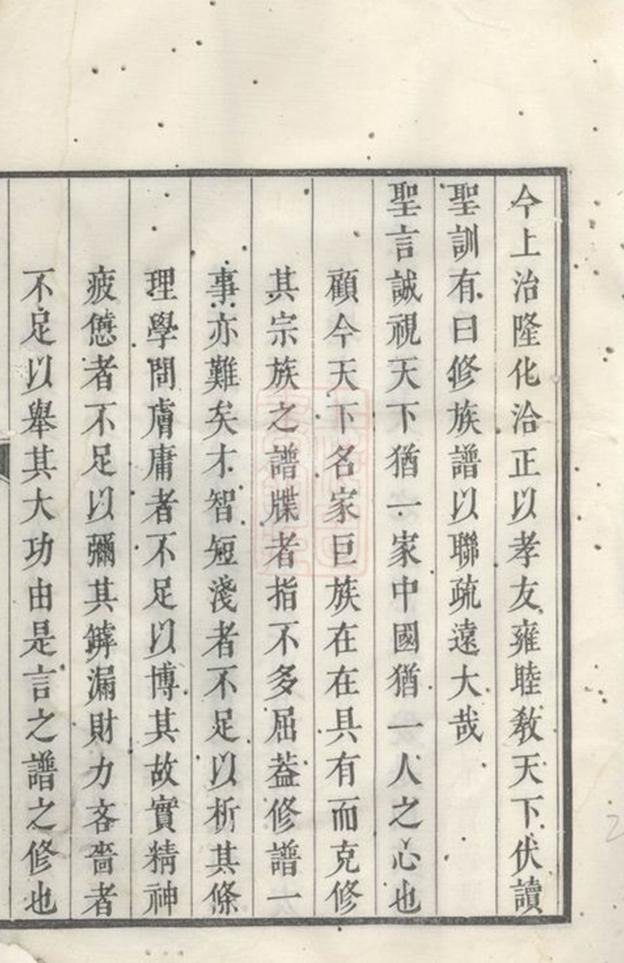 今上治隆化洽正以孝友雍睦敎天下伏讀
聖訓有曰修族譜以聯疏遠大哉
聖言誠視天下猶一家中國猶一人之心也
顧今天下名家巨族在在具有而克修
其宗族之譜牒者指不多屈葢修譜一
事亦難矣才智短淺者不足以析其條
理學問膚庸者不足以博其故實精神
疲憊者不足以彌其罅漏財力吝嗇者
不足以舉其大功由是言之譜之修也